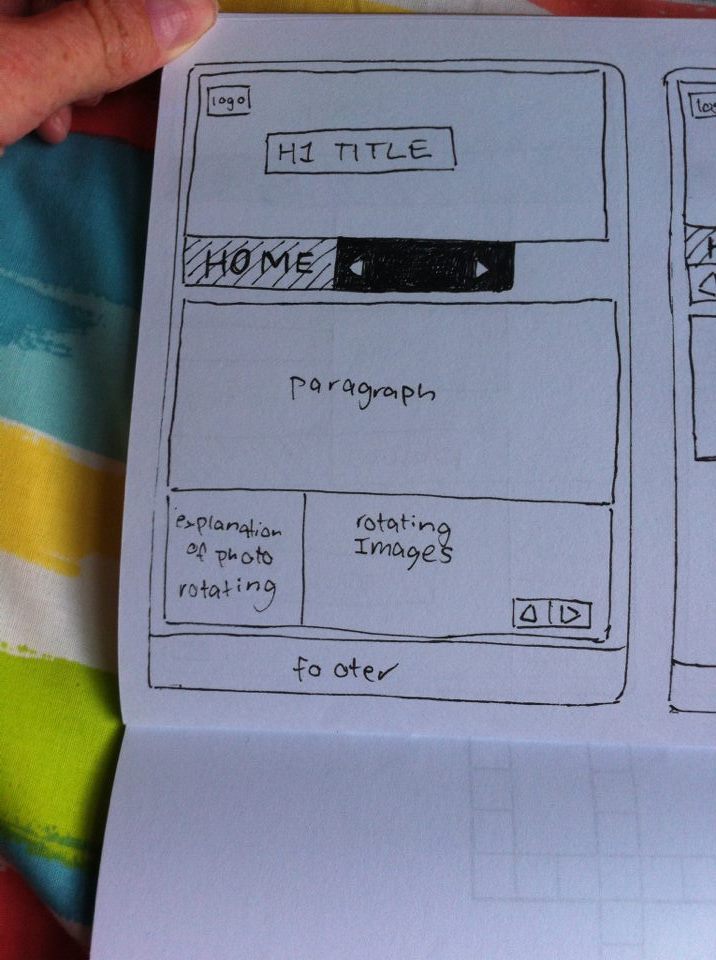 logo
H1 TITLE
HOME
paragraph
explanation
of photo
rotating
rotating
Images
footer